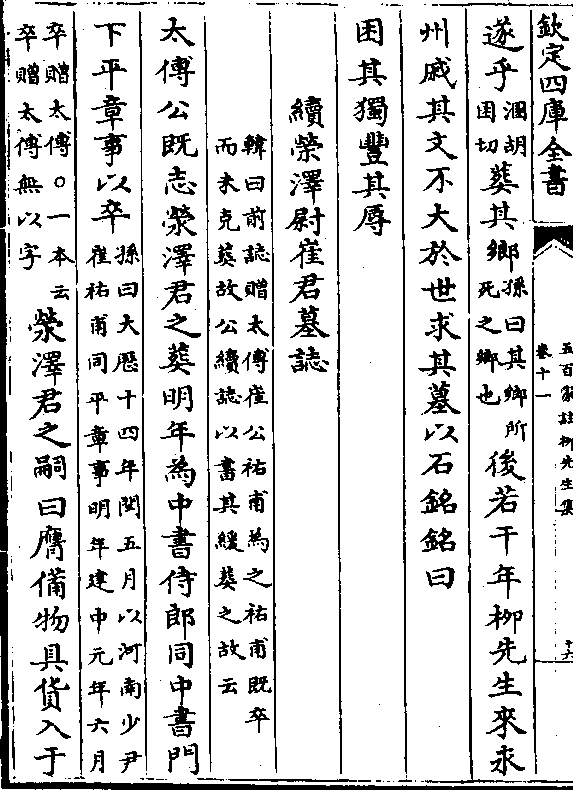 欽定四庫全書
五百家註柳先生集
卷十一
十六
遂乎涃胡困切葬其鄉孫曰其鄉所死之鄉也後若干年柳先生來永
州戚其文不大於世求其墓以石銘銘曰
困其獨豐其辱
續滎澤尉崔君墓誌
韓曰前誌贈太傅崔公祐甫為之祐甫既卒
而未克葬故公續誌以書其緩葬之故云
太傅公既志滎澤君之葬明年為中書侍郎同中書門
下平章事以卒孫曰大歷十四年閏五月以河南少尹崔祐甫同平章事明年建中元年六月
卒贈太傅○一本云卒贈太傅無以字滎澤君之嗣曰膺備物具貨入于